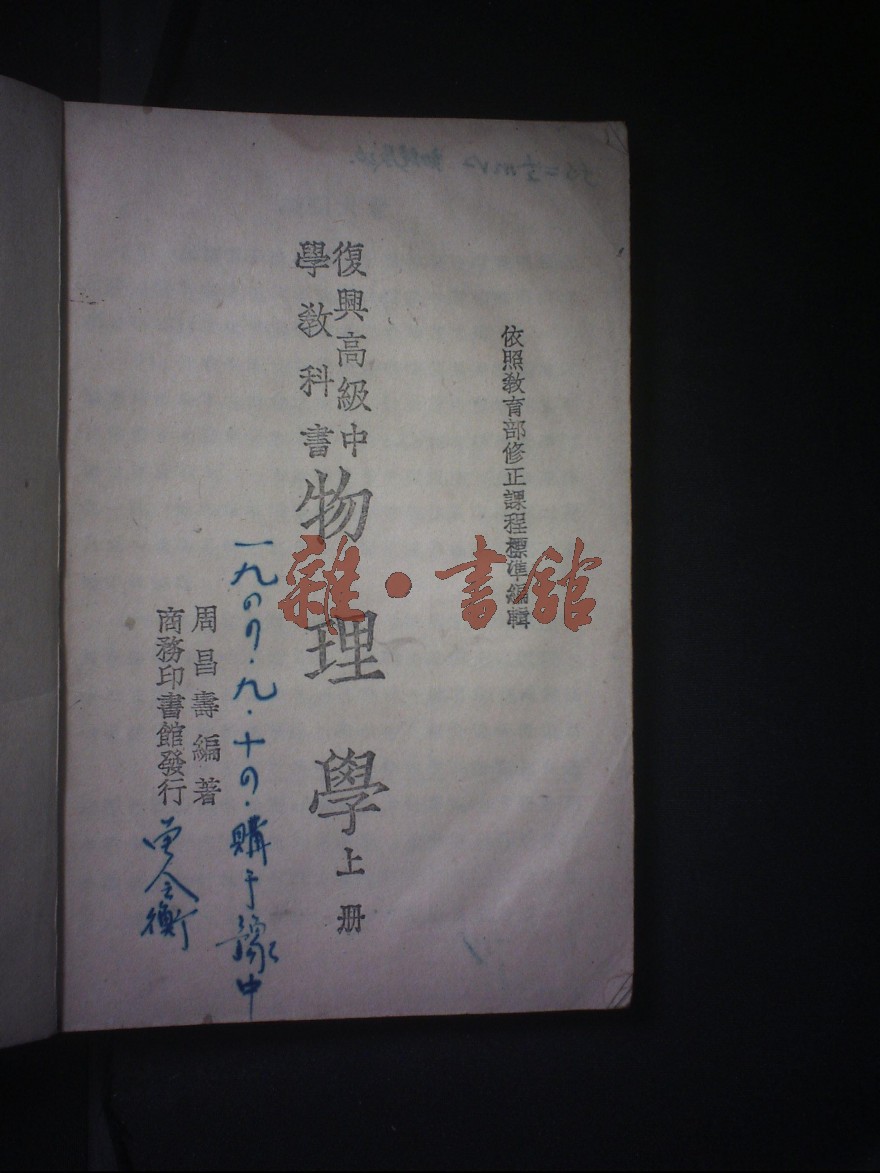 依照教育部修正課程標準編輯
復興高級中
學教科書
物理學上册
一九四四·九·十四·購于豫中
周昌壽編著
商務印書館發行
雜·書舘